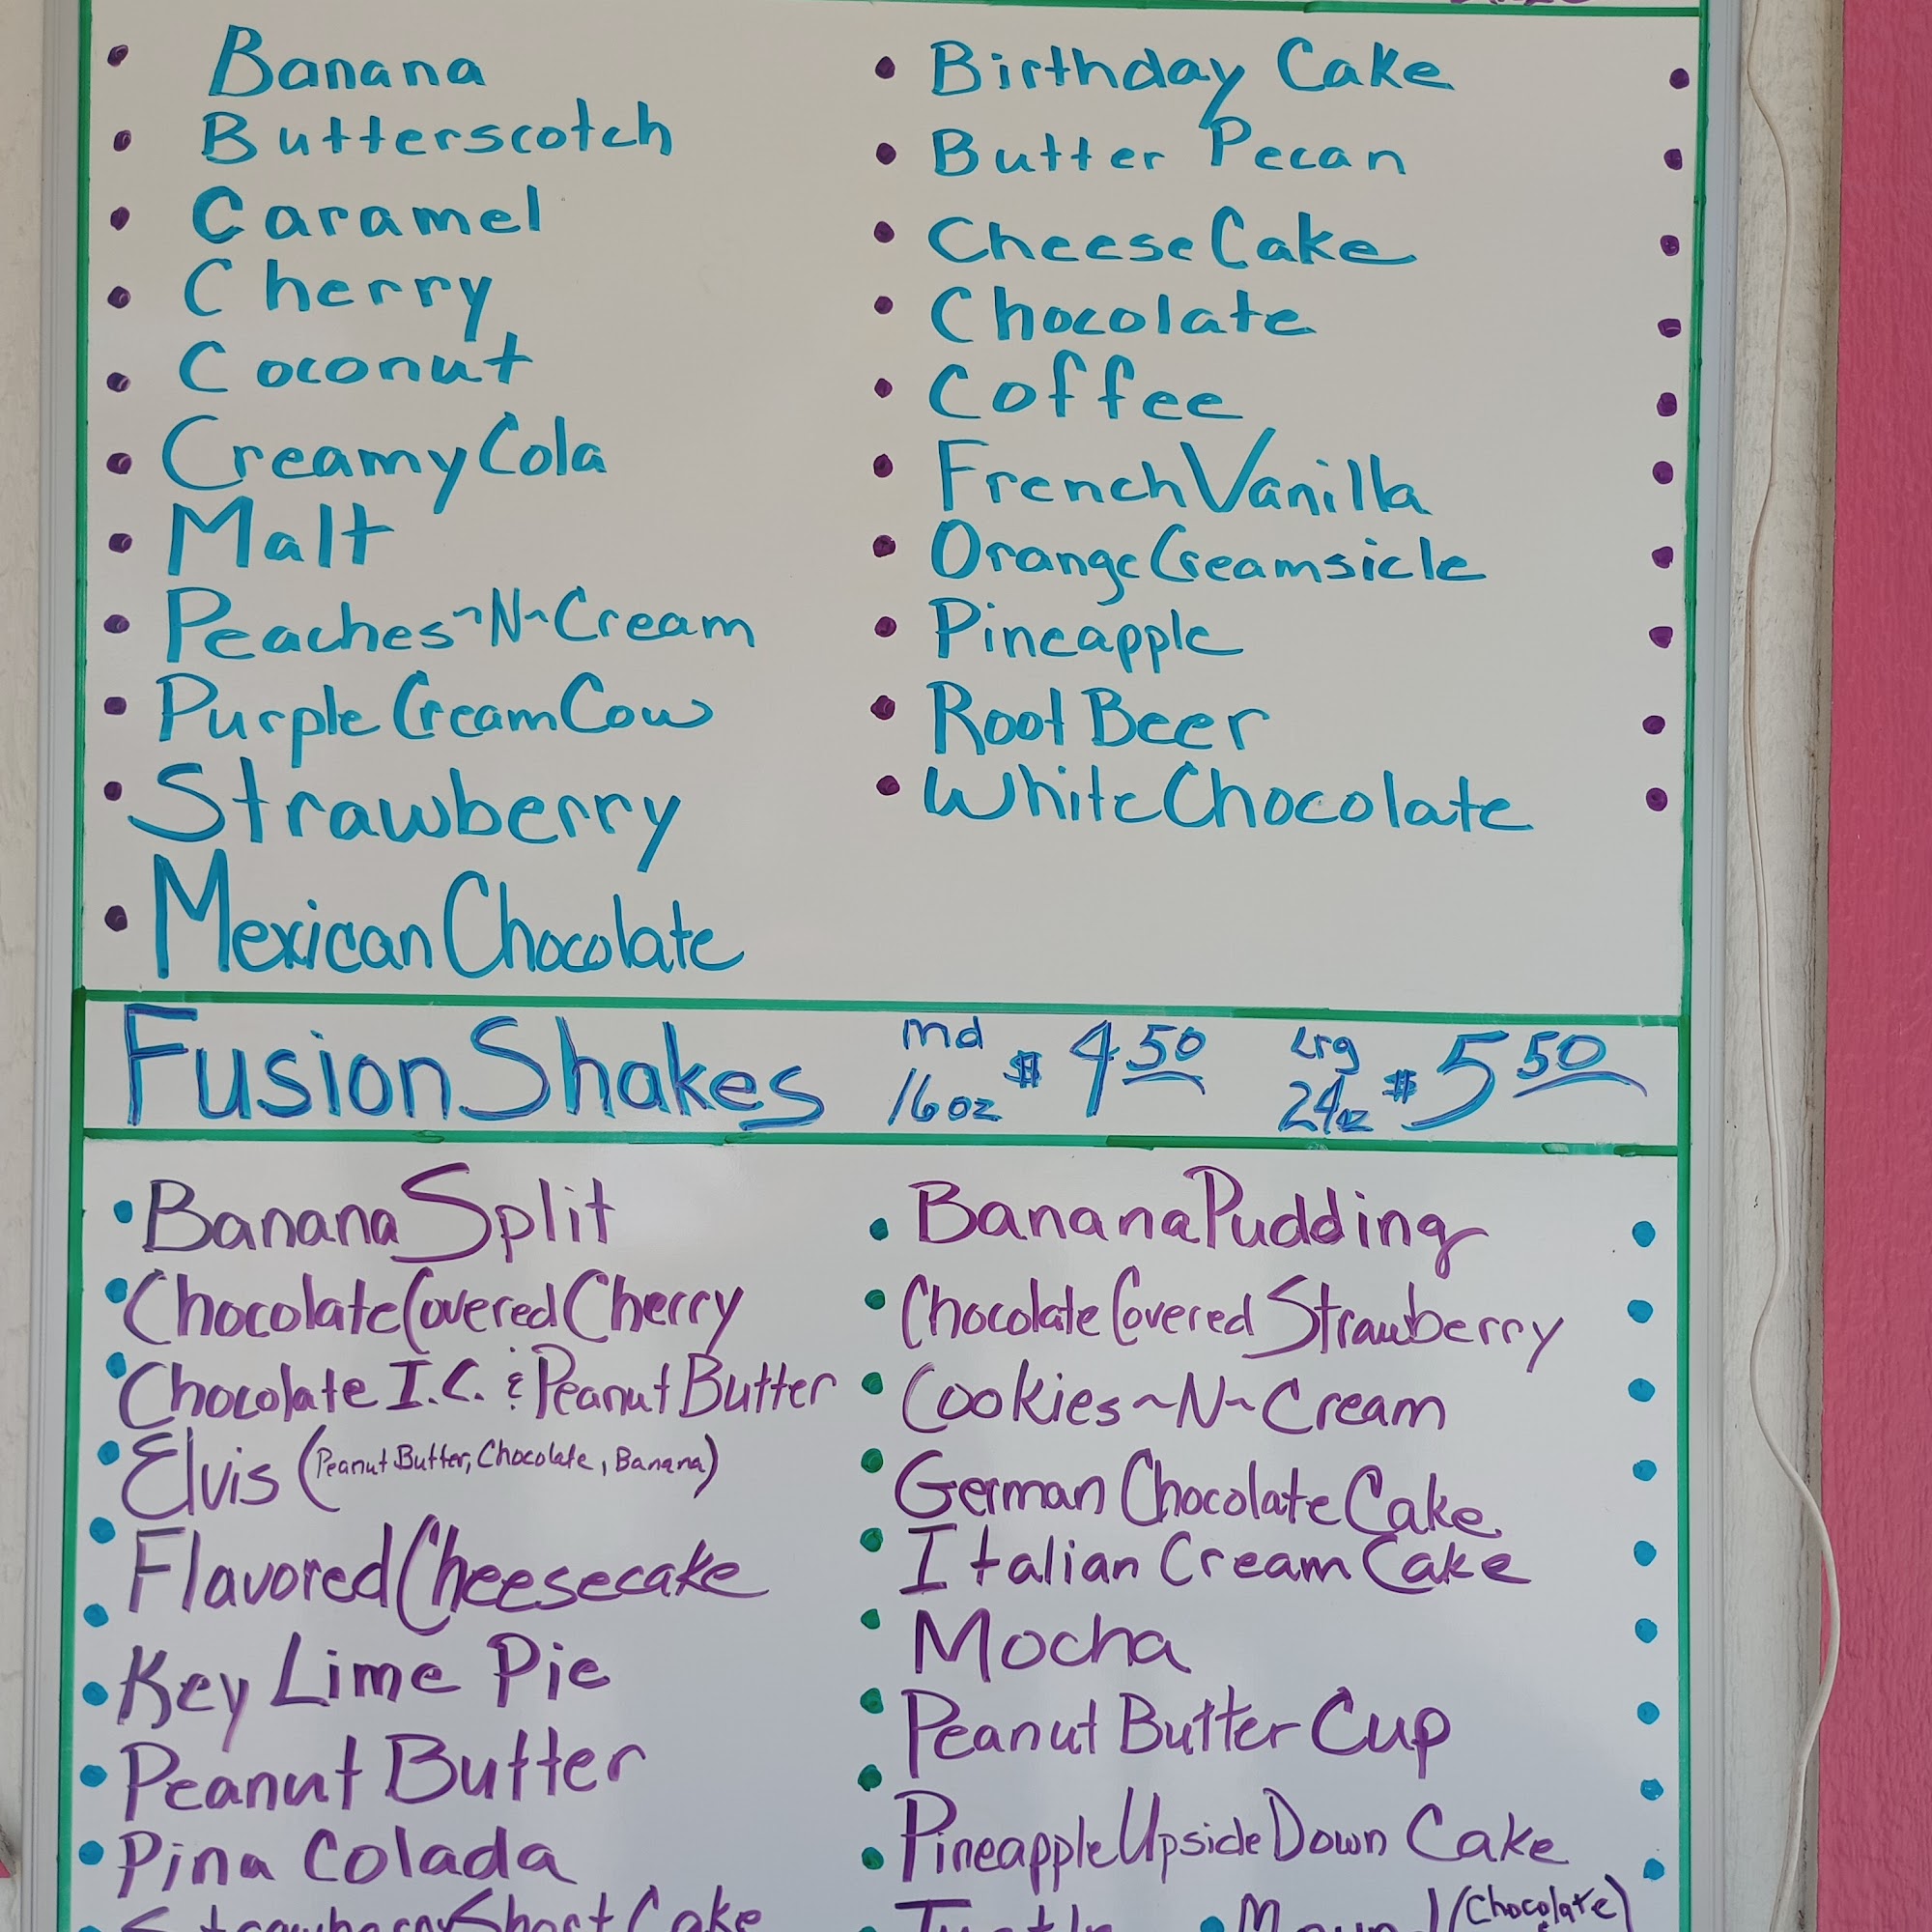 Banana
Birthday Cake
Butterscotch
Butter Pecan
Caramel
CheeseCake
Cherry
Chocolate
Coconut
Coffee
Creamy Cola
French Vanilla
Malt
Orange Creamsicle
Peaches~N~Cream
Pineapple
Purple Cream Cow
Root Beer
Strawberry
White Chocolate
Mexican Chocolate
Fusion Shakes md 16oz $4.50 Lrg 24oz $5.50
Banana Split
Banana Pudding
Chocolate Covered Cherry
Chocolate Covered Strawberry
Chocolate I.C. & Peanut Butter
Cookies~N~Cream
Elvis (Peanut Butter, Chocolate, Banana)
German Chocolate Cake
Flavored Cheesecake
Italian Cream Cake
Key Lime Pie
Mocha
Peanut Butter
Peanut Butter Cup
Pina Colada
Pineapple Upside Down Cake
Strawberry Short Cake
Turtle
(Chocolate)